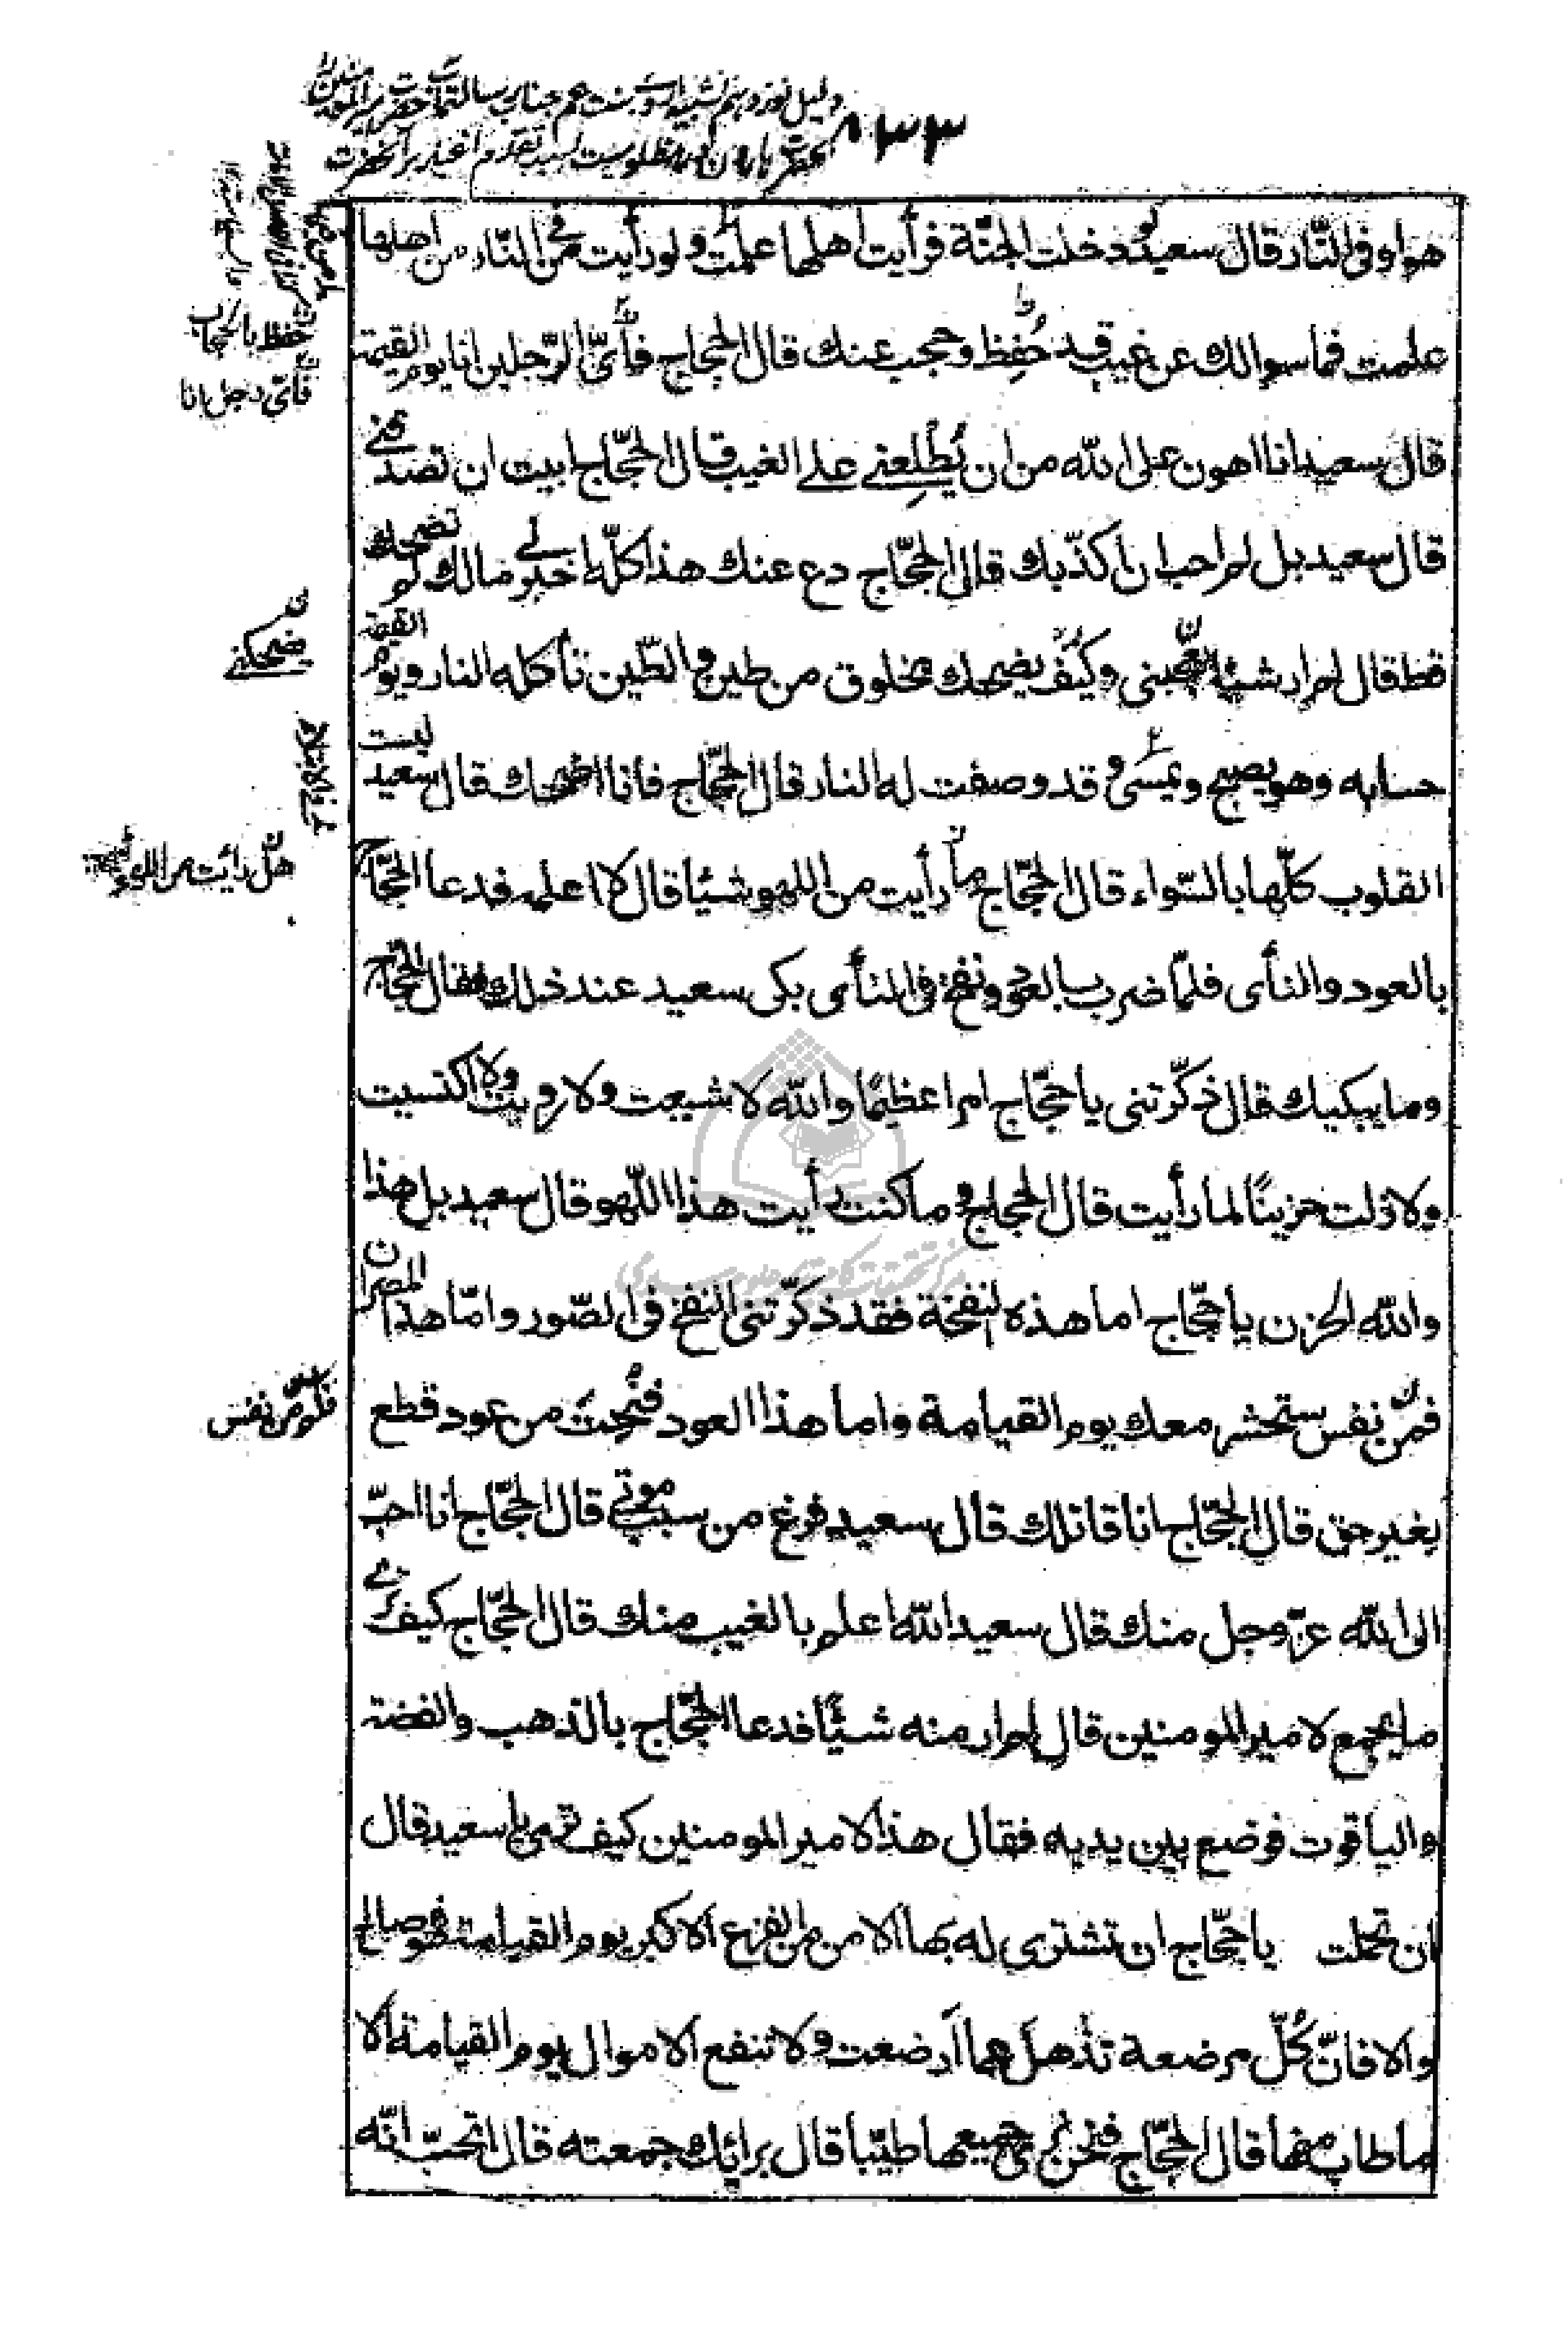 دلیل نوزدهم تشبیه
٨٣٣
هو او فی النّار قال سعید لو دخلت الجنّة فرأیت اهلها علمت ولو رأیت من فی النّار من اهلها
علمت فما سوالك عن غیب قد حُفِظ وحجب عنك قال الحجاج فأیّ الرّجلین انا یوم القیمة
قال سعید انا اهون علی الله من ان یُطْلِعنی علی الغیب قال الحجّاج ابیت ان تصدقنی
قال سعید بل لم احب ان اکذّبك قال الحجّاج دع عنك هذا کلّه اخبرنی مالك لم تضحك
قط قال لم ار شیئا یضحکنی وکیف یضحك مخلوق من طین والطّین تأکله النار ویوم القیمة
حسابه وهو یصبح ویمسی وقد وصفت له النار قال الحجّاج فانا اضحك قال سعید لیست
القلوب کلّها بالسّواء قال الحجّاج ما رأیت من اللهو شیئا قال لا اعلمه فدعا الحجّاج
بالعود والنأی فلمّا ضرب بالعود ونفخ فی المنأی بکی سعید عند ذلك فقال الحجّاج
وما یبکیك قال ذکّرتنی یا حجّاج امرا عظیمًا والله لا شبعت ولا رویت ولا اکتسیت
ولا زلت حزینًا لما رأیت قال الحجاج وما کنت رأیت هذا اللّهو قال سعید بل هذا
والله الحزن یا حجّاج اما هذه النفخة فقد ذکّرتنی النفخ فی الصّور وامّا هذا المصران
فمن نفس ستحشر معك یوم القیامة واما هذا العود فنُحِتَ من عود قطع
بغیر حق قال الحجّاج انا قاتلك قال سعید فرغ من سبب موتی قال الحجّاج انا احبّ
الی الله عزّ وجل منك قال سعید الله اعلم بالغیب منك قال الحجّاج کیف تری
ما یجمع لامیر المومنین قال لم ار منه شیئًا فدعا الحجّاج بالذهب والفضة
والیاقوت فوضع بین یدیه فقال هذا لامیر المومنین کیف تری یا سعید قال
ان تحملت یا حجّاج ان تشتری له بها الامن من الفزع الاکبر یوم القیامة فهو صالح
والا فانّ کُلّ مرضعة تذهل عما أرضعت ولا تنفع الاموال یوم القیامة الا
ما طاب منها قال الحجّاج فنحن نری جمیعها طیّبا قال برائك جمعته قال اتحبّ انّه
حفظ بالحجاب
فأی رجل انا
یضحکنی
هل رأیت من اللهو
فکم من نفس